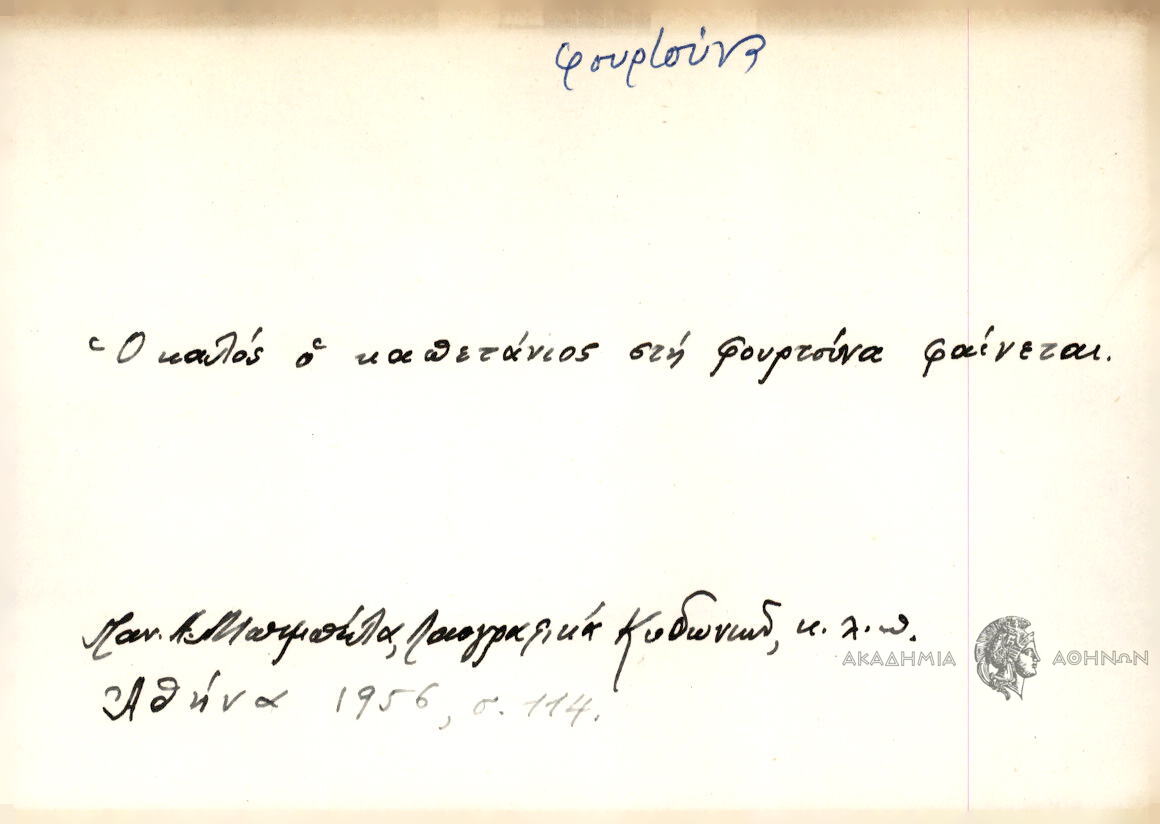 φουρτούνα
Ὁ καλός ὁ καπετάνιος στή φουρτούνα φαίνεται.
Παν. Λαογραφικά Κυδωνιῶν, κ.λ.π.
Ἀθήνα 1956, σ. 114.
ΑΚΑΔΗΜΙΑ ΑΘΗΝΩΝ